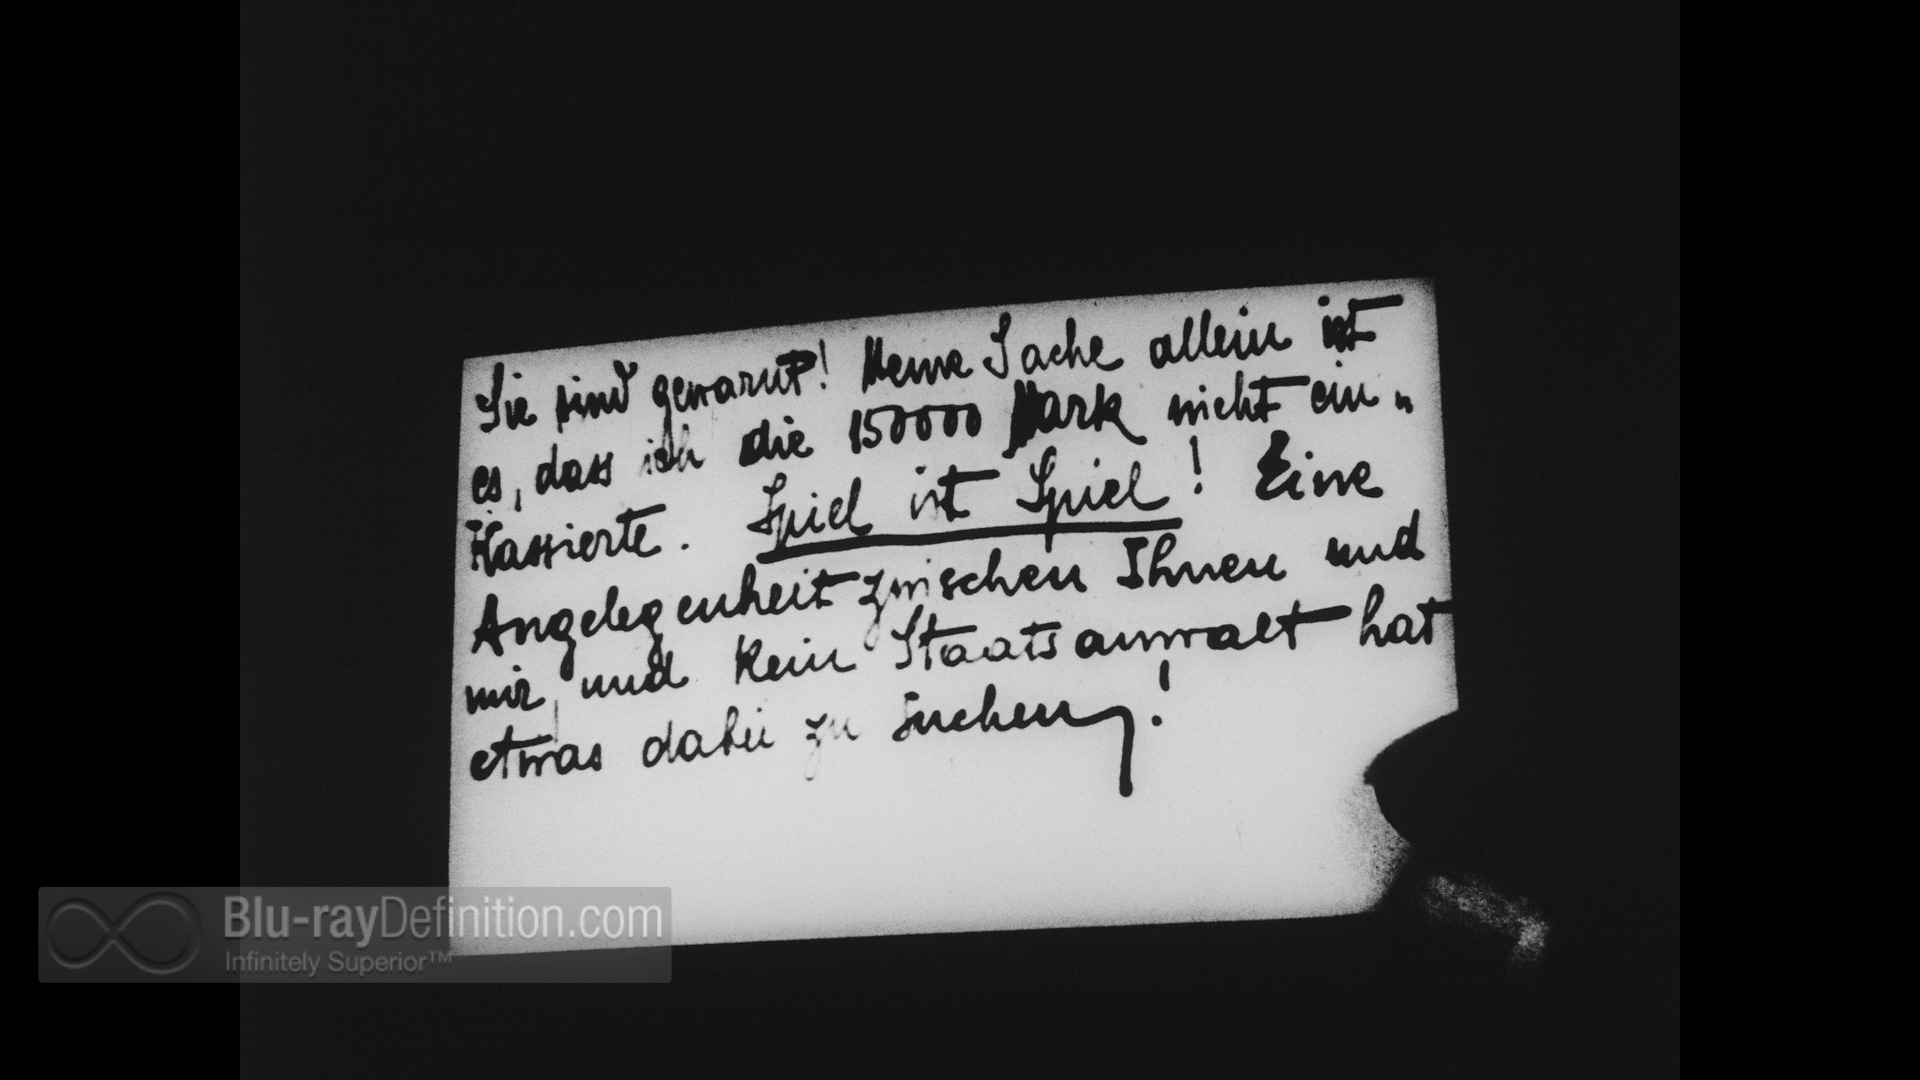 Sie sind gewarnt! Meine Sache allein ist
es, dass ich die 150000 Mark nicht ein„
Kassierte. Spiel ist Spiel! Eine
Angelegenheit zwischen Ihnen und
mir, und kein Staatsanwalt hat
etwas dabei zu suchen!
Blu-rayDefinition.com
Infinitely Superior™